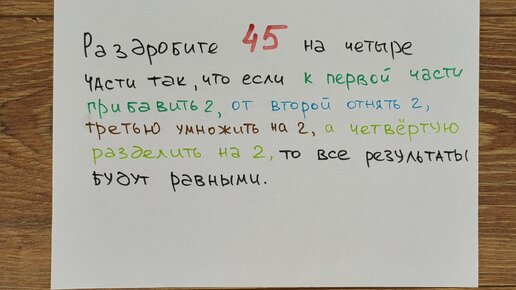 Раздробите 45 на четыре
части так, что если к первой части
прибавить 2, от второй отнять 2,
третью умножить на 2, а четвёртую
разделить на 2, то все результаты
будут равными.